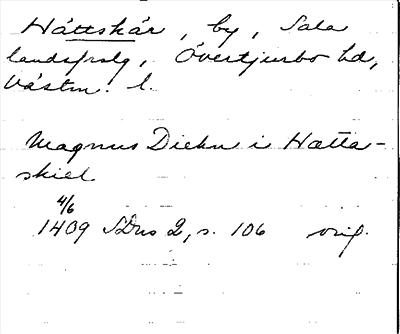 Håttskär, by, Sala
landsförs., Övertjurbo hd,
Västm. l.
Magnus Diekn i Hætta-
skiel
4/6
1409 SDns 2, s. 106 orig.